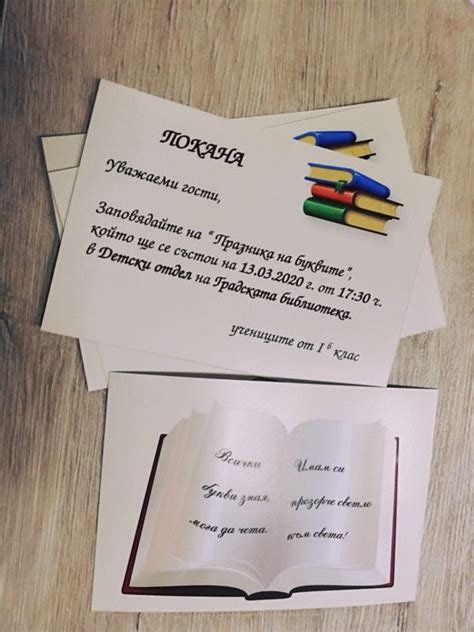 ПОКАНА
Уважаеми гости,
Заповядайте на “ Празника на буквите”,
който ще се състои на 13.03.2020 г. от 17:30 ч.
в Детски отдел на Градската библиотека.
учениците от I б клас
Всички
букви зная,
мога да чета.
Имам си
прозорче светло
към света!